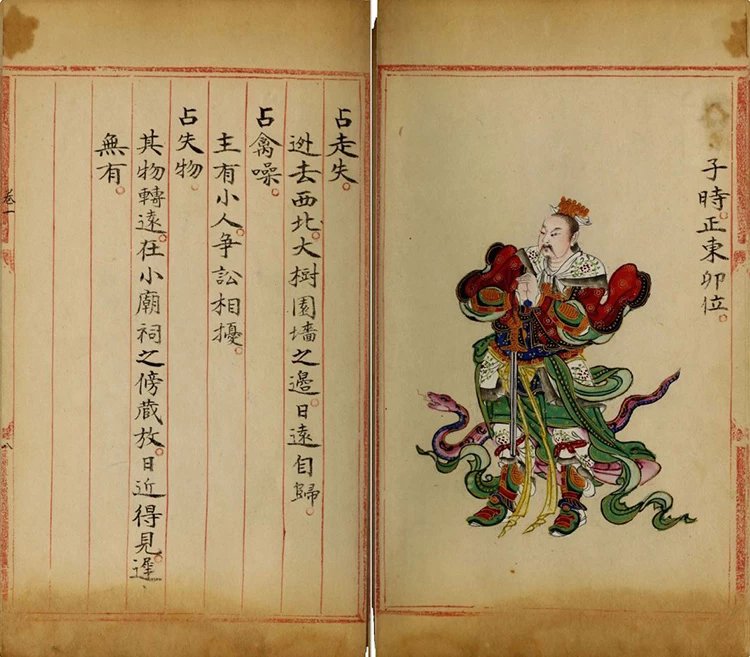 子時正東卯位
占走失
迯去西北大樹園墻之邉日遠自歸
占禽噪
主有小人争訟相擾
占失物
其物轉遠在小廟祠之傍蔵放日近得見遲
無有
卷一
八